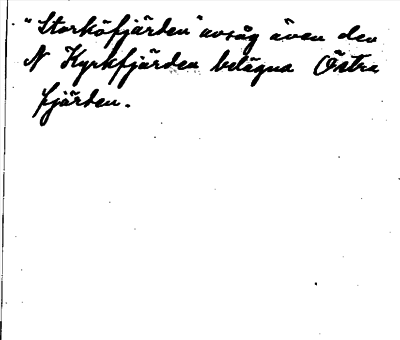 "Storköfjärden" avsåg även den
N Kyrkfjärden belägna Östra
fjärden.